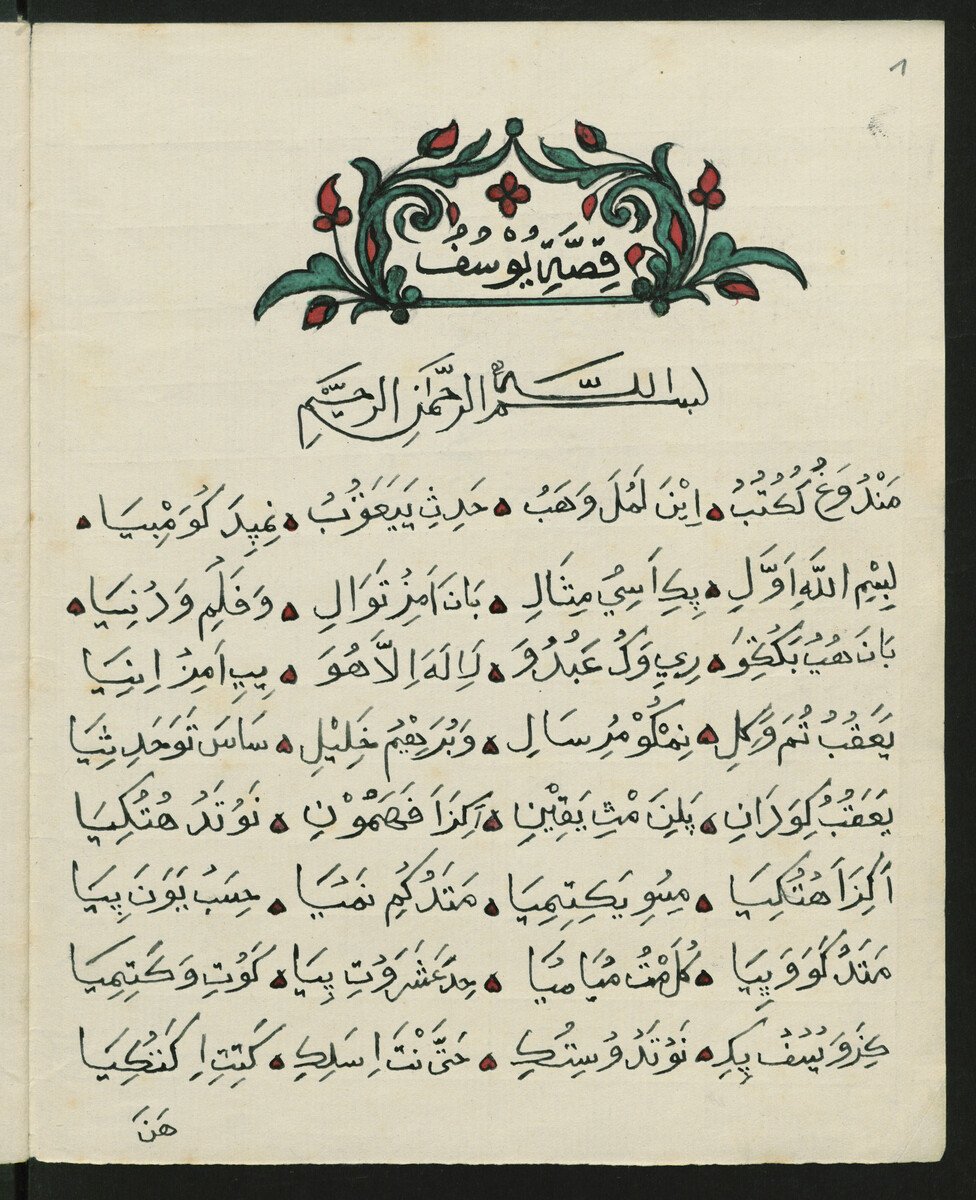 ١
قِصَّةِ يُوْسُفُ
بسم اللّٰه الرَّحْمٰنِ الرَّحِيْمِ
مَنْدُ وَغُ لَكُتُبُ ؞ اِيْنَ لَمُلَ وَهَبُ ؞ حَدِثِ يَيَعَقُبُ ؞ نِمٖپِدَ كُوَمْبِيَا ؞
بِسْمِ اللَّهِ اَوَّلِ ؞ پِكِ اَسِيُ مِثَالِ ؞ بَانَ اَمِزُتَوَالِ ؞ وَفَلَمِ وَدُنِيَا ؞
بَانَ هُبُ بَكَكْتِوَ ؞ رِيِ وَكُ عَبُدُوَ ؞ لَا لَهَ اِلاَّ هُوَ ؞ پِپِ اَمِزُ اِنِيَا
يَعَقُبُ تُمَ وَكِلِ ؞ نِمْكُوْ مُرِسَالِ ؞ وَبُرَهِيْمُ خَلِيْلِ ؞ سَاسَ تَوَحَدِثِيَا
يَعَقُبُ كِوَدَانِ ؞ پَلِنَ مْتِ يَقِيْنِ ؞ اَكِزَا فَهَمُوْنِ ؞ نَوُتَدُ هُتُكِيَا
اَكِزَا هُتُكِيَا ؞ مِيِوِ يَكِتِمِيَا ؞ مَتَدُ كُمِ نَمُيَا ؞ حِسَبُ يَوَنَ پِيَا
مَتَدُ كَوَوَپِيَا ؞ كُلَ مْتُ مُيَا مُيَا ؞ حِدَعَشَرَ وُتِ پِيَا ؞ كَوُتِ وَكَتِمِيَا
كِزَوَ يُسُفُ پِكِ ؞ نَوُتَدُ وُسِتُكِ ؞ حَتَّى نْتَ اِسَلِكِ ؞ كَتِتِ اِكَنُكِيَا
هَنَ